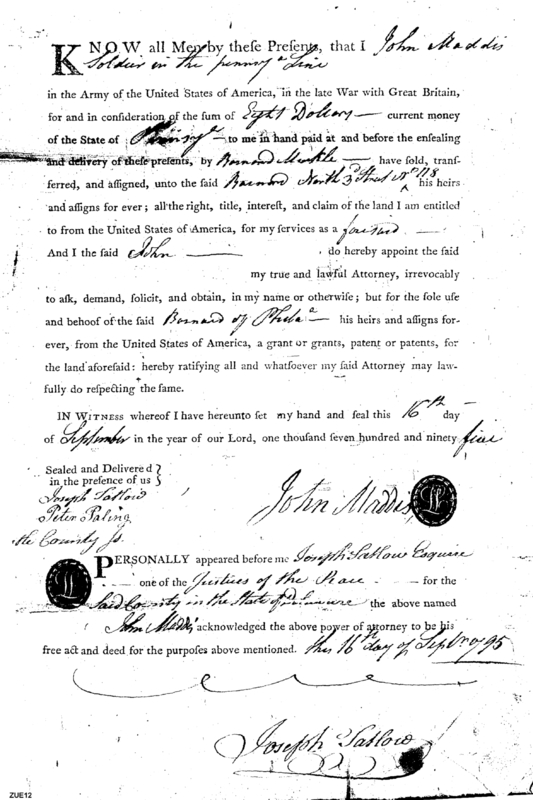 KNOW all Men by these Presents, that I John Maddis
Soldier in the pennsya Line
in the Army of the United States of America, in the late War with Great Britain,
for and in consideration of the sum of Eight Dollars — current money
of the State of — to me in hand paid at and before the ensealing
and delivery of these presents, by Barnard — have sold, trans-
ferred, and assigned, unto the said Barnard North 3d Street No 118 his heirs
and assigns for ever; all the right, title, interest, and claim of the land I am entitled
to from the United States of America, for my services as a —
And I the said John — do hereby appoint the said
my true and lawful Attorney, irrevocably
to ask, demand, solicit, and obtain, in my name or otherwise; but for the sole use
and behoof of the said Barnard of Phila — his heirs and assigns for-
ever, from the United States of America, a grant or grants, patent or patents, for
the land aforesaid: hereby ratifying all and whatsoever my said Attorney may law-
fully do respecting the same.
IN WITNESS whereof I have hereunto set my hand and seal this 16th day
of September in the year of our Lord, one thousand seven hundred and ninety five
Sealed and Delivered
in the presence of us
Joseph Tatlow
Peter Paling
the County Js
John Maddis
PERSONALLY appeared before me Joseph Tatlow Esquire
one of the Justices of the Peace — for the
Said County in the State of Delaware the above named
John Maddis acknowledged the above power of attorney to be his
free act and deed for the purposes above mentioned. this 16th day of Sepbr 1795
Joseph Tatlow
ZUE12